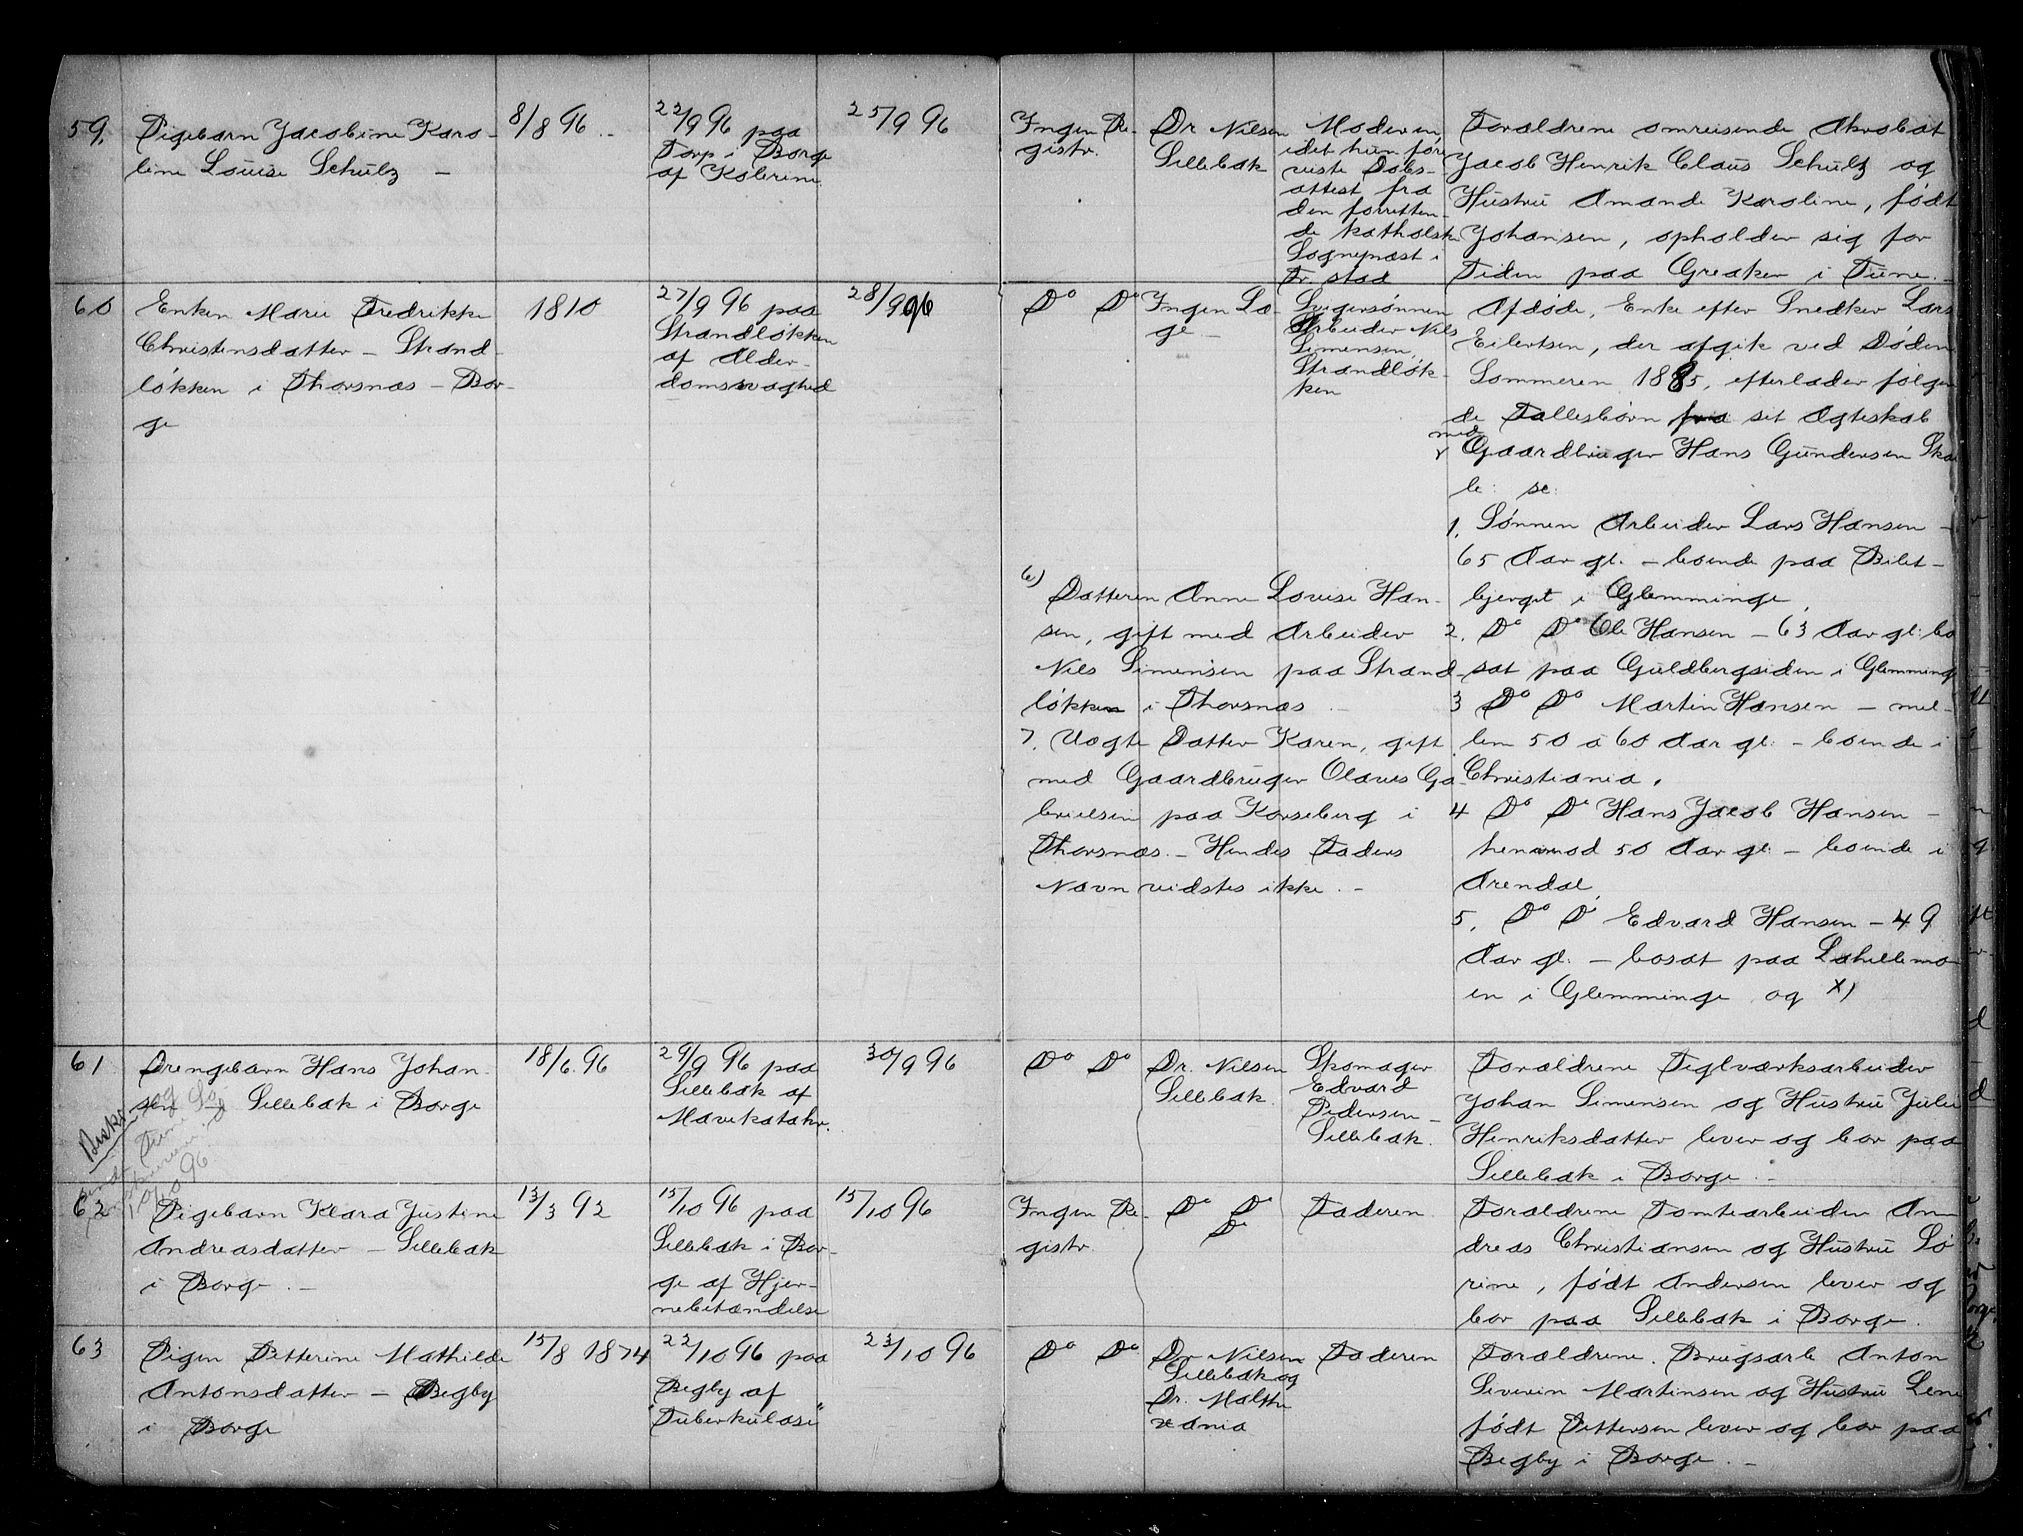 59.
Pigebarn Jacobine Karo-
line Louise Schulz –
8/8 96
22/9 96 paa
Torp i Borge
af Kolerine
25/9 96
Ingen Re-
gistr.
Dr Nilsen
Sellebak
Moderen,
idet hun fore
viste Dobs-
attest fra
den forretten-
de katholske
Sognepræst i
Fr.stad
Forældrene omreisende Akrobat
Jacob Henrik Claus Schulz og
Hustru Amande Karoline, født
Johansen, opholder sig for
Tiden paa Greaker i Tune. –
60
Enken Marie Fredrikke
Christensdatter – Strand-
løkken i Thorsnæs – Bor-
ge
1810
27/9 96 paa
Strandløkken
af Alder-
domssvaghed
28/9 96
Do Do
Ingen Læ-
ge –
Svigersønnen
Arbeider Nils
Simensen,
Strandløk-
ken
Afdøde, Enke efter Snedker Lars
Eilertsen, der afgik ved Døden
Sommeren 1885, efterlader følgen
de Fællesbørn fra sit Ægteskab
med
Gaardbruger Hans Gundersen Ska
le: se:
1. Sønnen Arbeider Lars Hansen –
65 Aar gl. – boende paa Bilet-
bjerget i Glemminge,
2. Do Do Ole Hansen – 63 Aar gl: bo
sat paa Guldbergsiden i Glemminge
3 Do Do Martin Hansen – mel-
lem 50 a 60 Aar gl: – boende i
Christiania.
4 Do Do Hans Jacob Hansen –
henimod 50 Aar gl: – boende i
Arendal,
5. Do Do Edvard Hansen – 49
Aar gl: – bosat paa Lahellemo
en i Glemminge og x)
6)
Datteren Anne Lovise Han-
sen, gift med Arbeider
Nils Simensen paa Strand-
løkken i Thorsnæs –
7. Uægte Datter Karen, gift
med Gaardbruger Olaves Ga-
brielsen paa Korseberg i
Thorsnæs. – Hendes Faders
Navn vidstes ikke. –
61
Drengebarn Hans Johan-
sen – Sellebak i Borge
18/6 96
29/9 96 paa
Sellebak af
Mavekatahr.
30/9 96
Do Do
Dr. Nilsen
Sellebak.
Skomager
Edvard
Pedersen –
Sellebak.
Forældrene Teglværksarbeider
Johan Simensen og Hustru Julie
Henriksdatter lever og bor paa
Sellebak i Borge. –
10/10 96
62
Pigebarn Klara Justine
Andreasdatter – Sellebak
i Borge. –
13/3 92
15/10 96 paa
Sellebak i Bor-
ge af Hjer-
nebetændelse
15/10 96
Ingen Re-
gistr.
Do Do
Do
Faderen
Forældrene Tomtearbeider An
dreas Christiansen og Hustru Lo
rine, født Andersen lever og
bor paa Sellebak i Borge.
63
Pigen Petterine Mathilde
Antonsdatter – Begby
i Borge
15/8 1874
22/10 96 paa
Begby af
"Tuberkulose"
23/10 96
Do Do
Dr Nilsen
Sellebak og
Dr. Malthe
xania
Faderen
Forældrene. Brugsarb Anton
Severin Martinsen og Hustru Lene
født Pettersen lever og bor paa
Begby i Borge. –